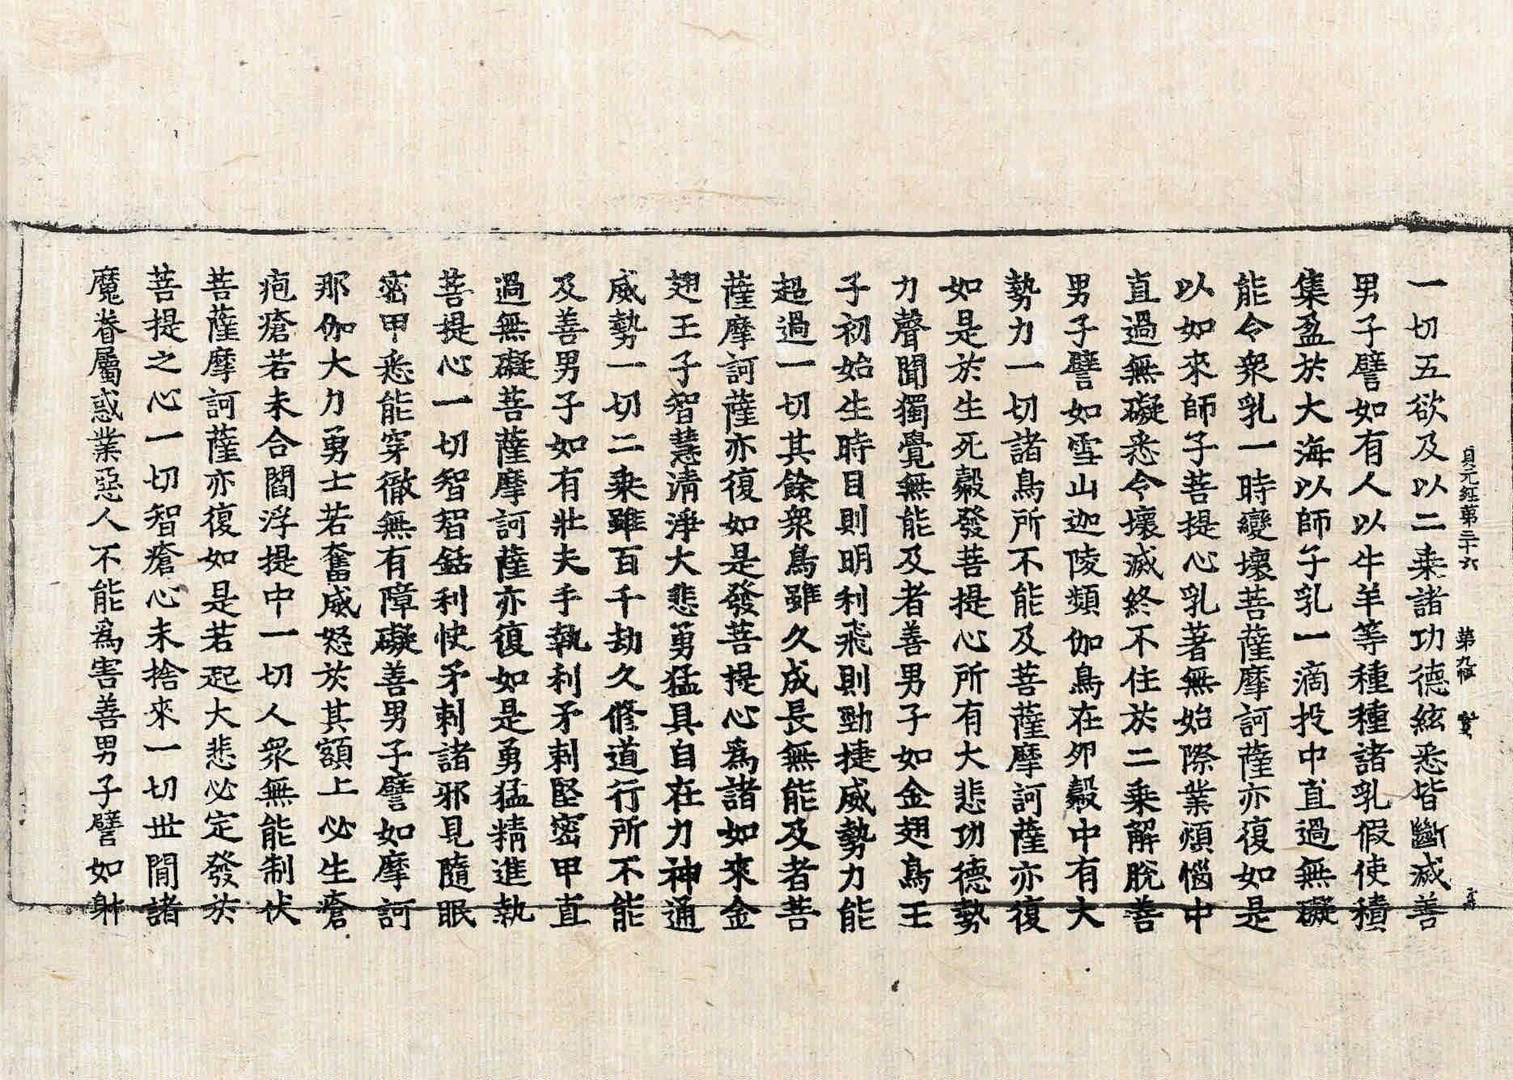 貞元経第三十六 第九張 賢
一切五欲及以二乗諸功德絃悉皆斷滅善
男子譬如有人以牛羊等種種諸乳假使積
集盈於大海以師子乳一滴投中直過無礙
能令衆乳一時變壞菩薩摩訶薩亦復如是
以如來師子菩提心乳著無始際業煩惱中
直過無礙悉令壞滅終不住於二乗解脫善
男子譬如雪山迦陵頻伽鳥在夘㲉中有大
勢力一切諸鳥所不能及菩薩摩訶薩亦復
如是於生死㲉發菩提心所有大悲功德勢
力聲聞獨覺無能及者善男子如金翅鳥王
子初始生時目則明利飛則勁捷威勢力能
超過一切其餘衆鳥雖久成長無能及者菩
薩摩訶薩亦復如是發菩提心爲諸如來金
翅王子智慧清淨大悲勇猛具自在力神通
威勢一切二乗雖百千劫久修道行所不能
及善男子如有壯夫手執利矛刺堅密甲直
過無礙菩薩摩訶薩亦復如是勇猛精進執
菩提心一切智智銛利快矛刺諸邪見隨眠
密甲悉能穿徹無有障礙善男子譬如摩訶
那伽大力勇士若奮威怒於其額上必生瘡
疱瘡若未合閻浮提中一切人衆無能制伏
菩薩摩訶薩亦復如是若起大悲必定發於
菩提之心一切智瘡心未捨來一切世間諸
魔眷屬惑業惡人不能爲害善男子譬如射